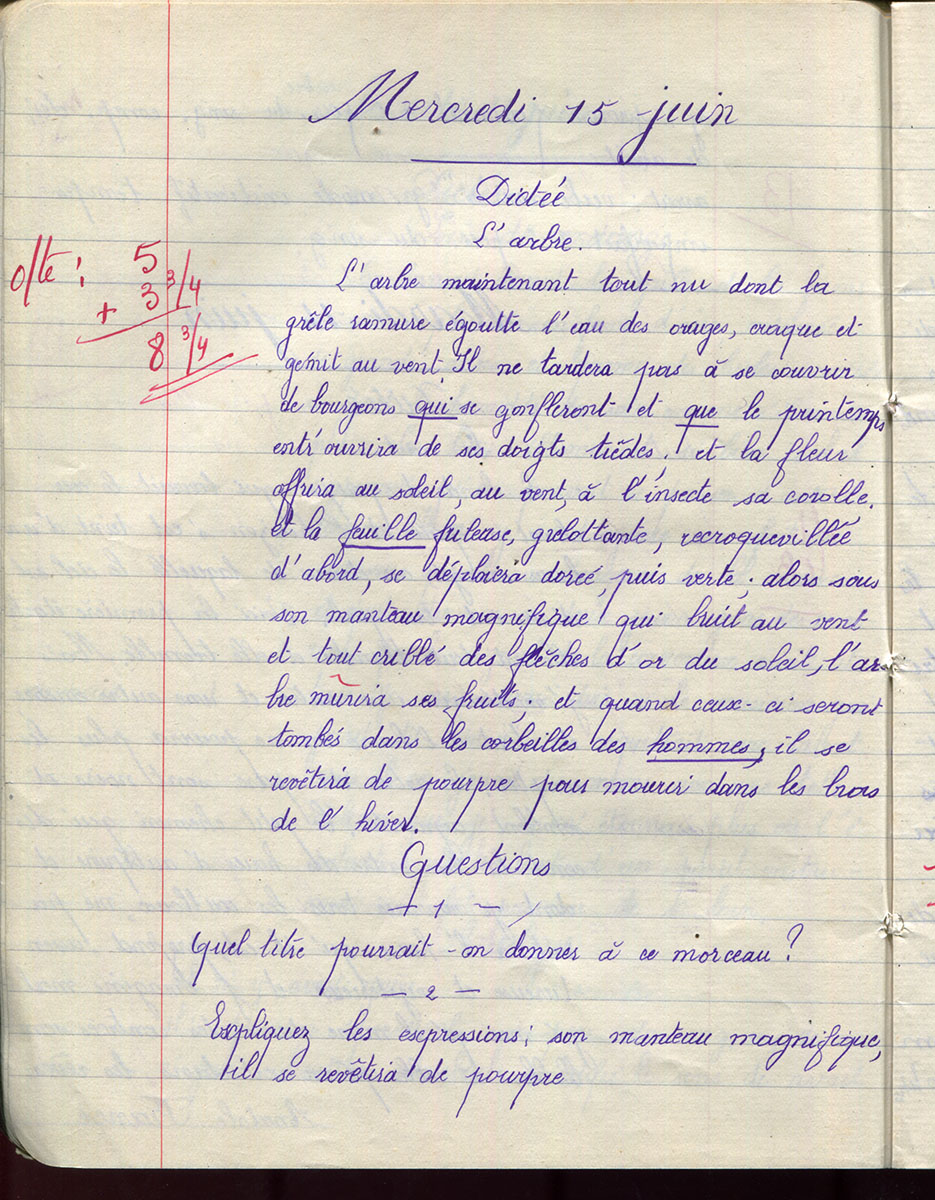 Mercredi 15 juin
Dictée
L'arbre.
5
+ 3 3/4
8 3/4
L'arbre maintenant tout nu dont la
grêle ramure égoutte l'eau des orages, craque et
gémit au vent. Il ne tardera pas à se couvrir
de bourgeons qui se gonfleront et que le printemps
entr'ouvrira de ses doigts tièdes; et la fleur
offrira au soleil, au vent, à l'insecte sa corolle.
et la feuille frileuse, grelottante, recroquevillée
d'abord, se déploiera dorée, puis verte; alors sous
son manteau magnifique qui bruit au vent
et tout criblé des flèches d'or du soleil, l'ar
bre mûrira ses fruits; et quand ceux-ci seront
tombés dans les corbeilles des hommes, il se
revêtira de pourpre pour mourir dans les bras
de l'hiver.
Questions
— 1 —
Quel titre pourrait-on donner à ce morceau?
— 2 —
Expliquez les expressions; son manteau magnifique,
il se revêtira de pourpre